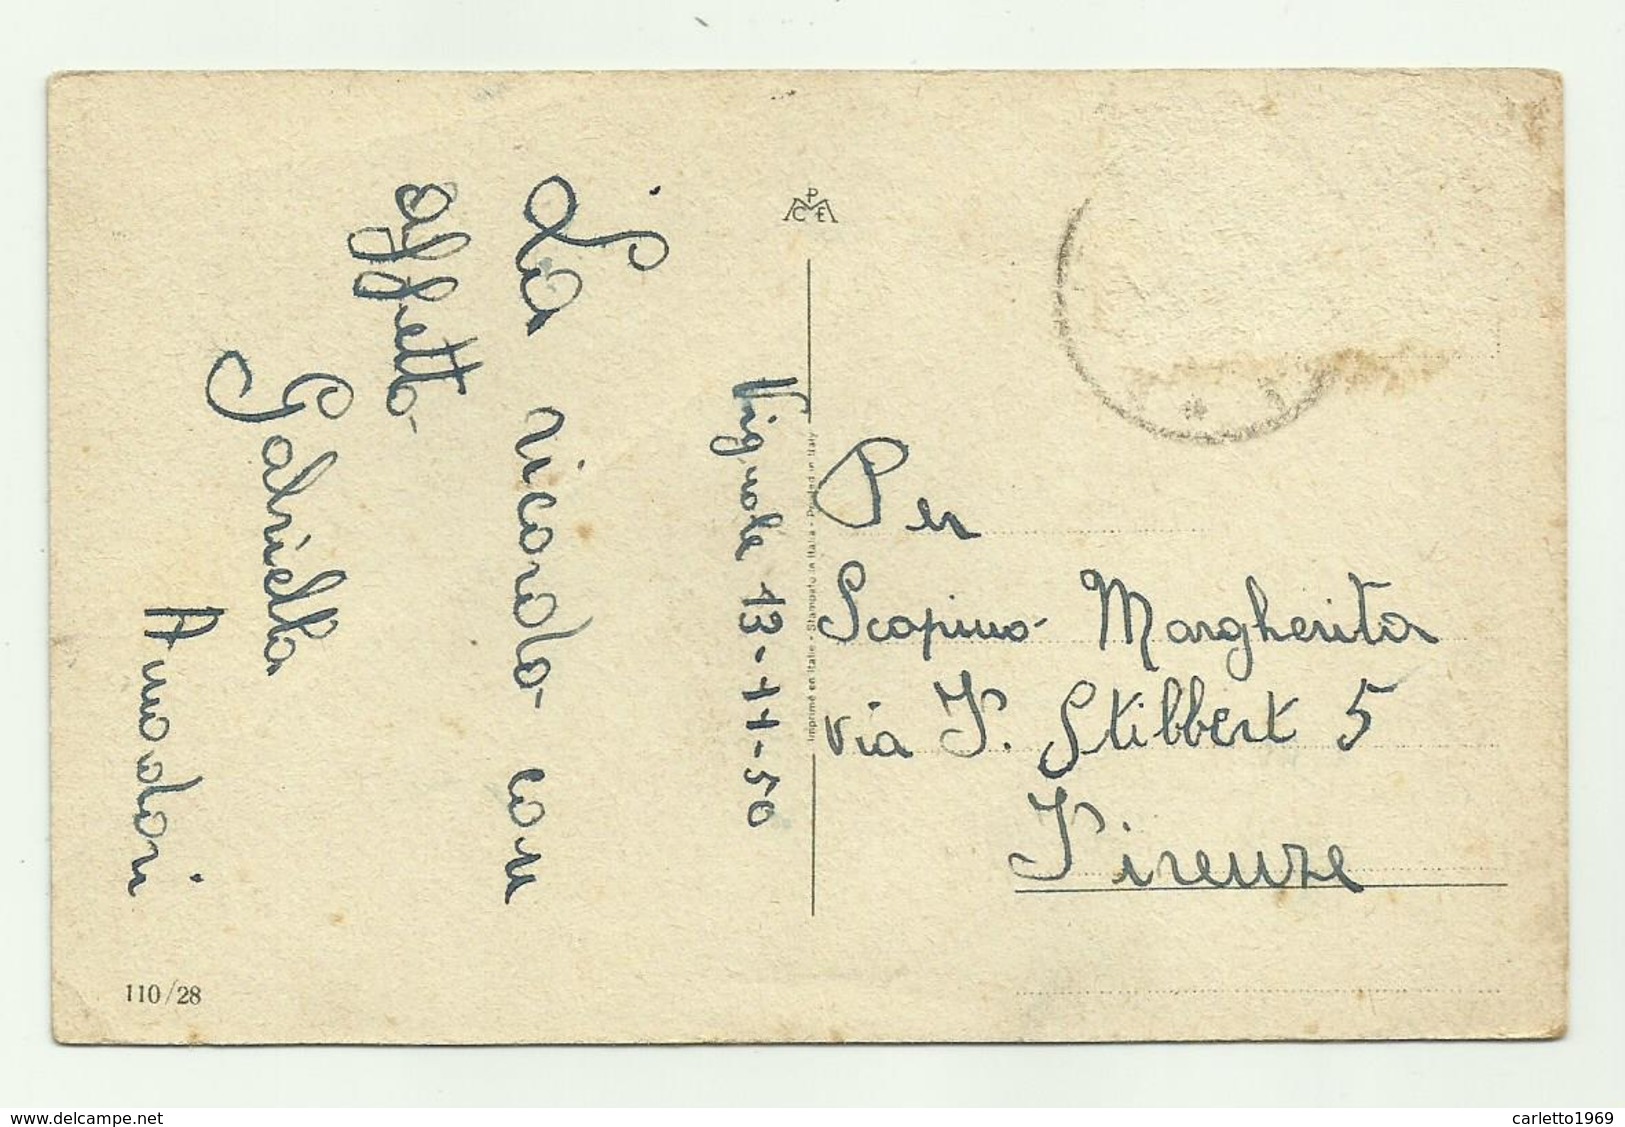 Vignole 13-11-50
Sì
La ricordo con
affetto
Gabriella
Amadori
110/28
P
C E
Imprimé en Italie - Stampato in Italia - Printed in Italy
Per
Scopino Margherita
via F. Stibbert 5
Firenze
www.delcampe.net
carletto1969